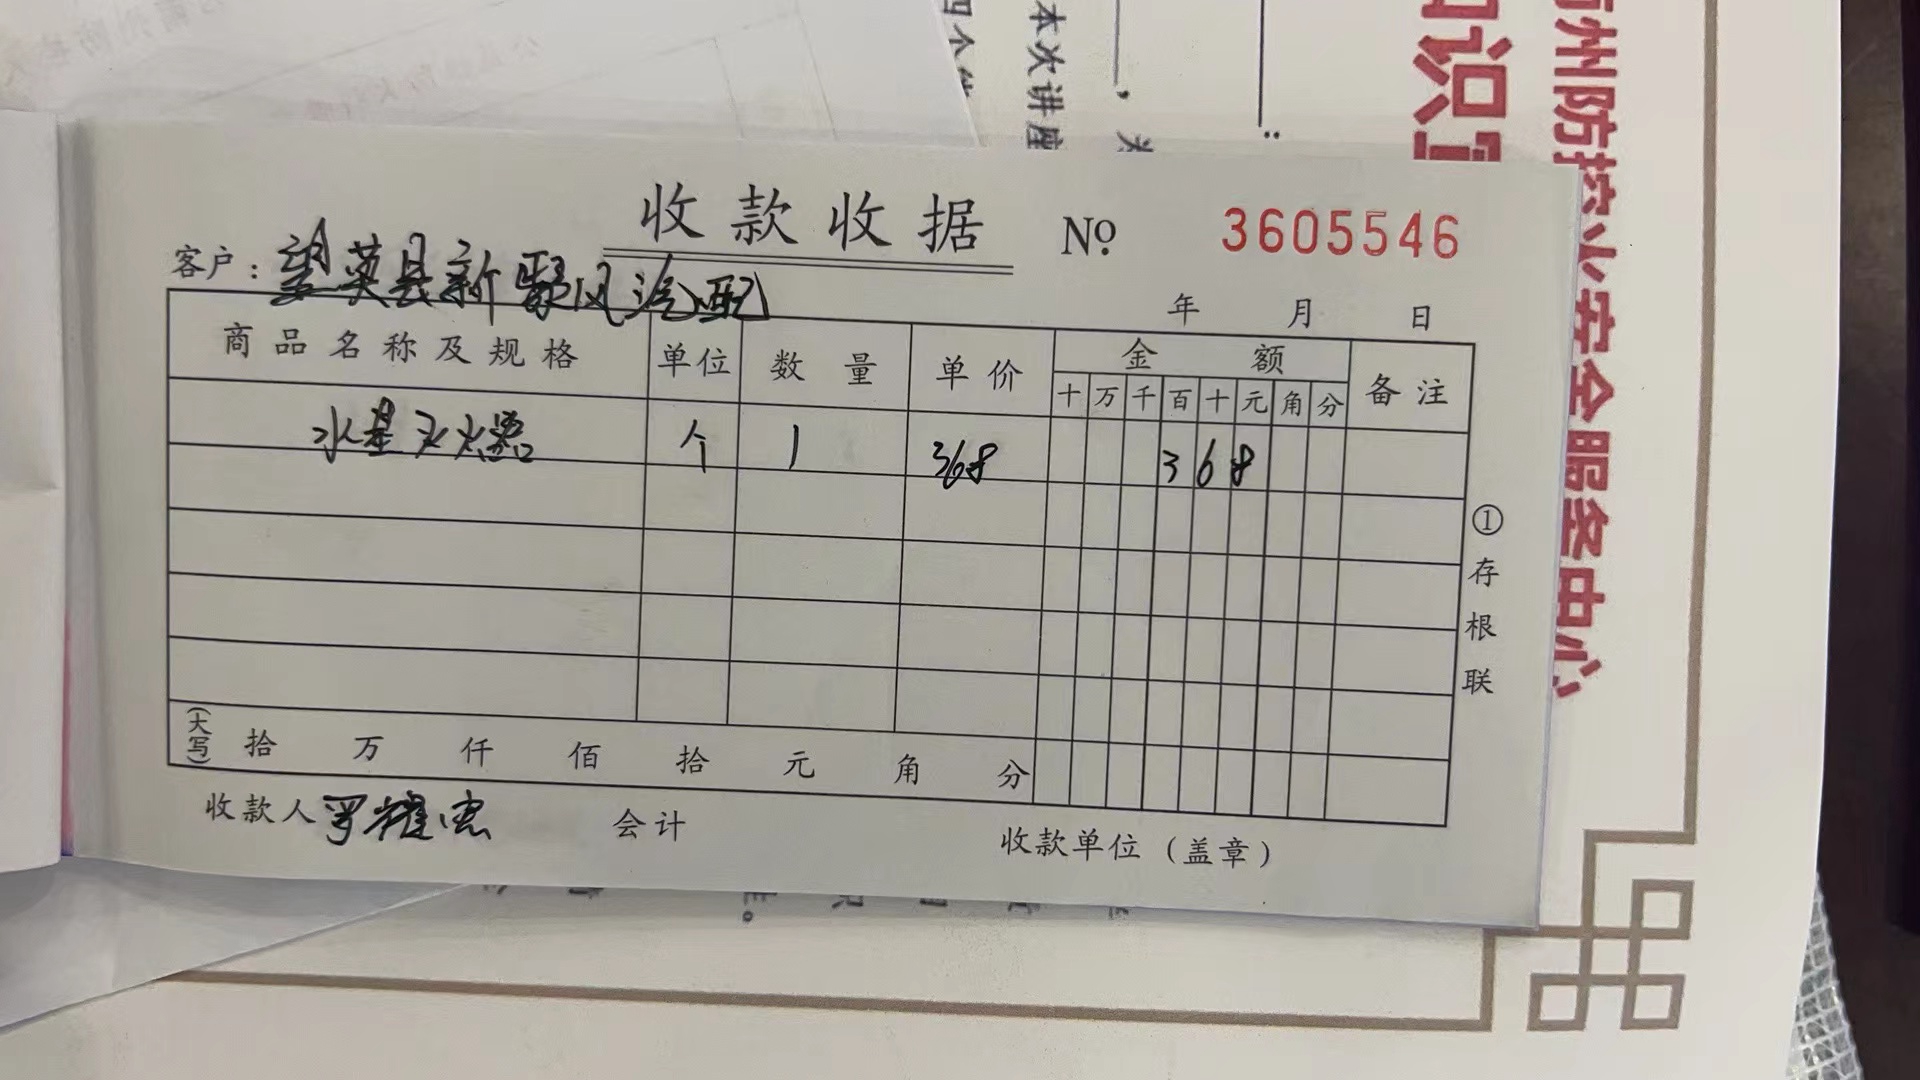 收款收据 № 3605546
客户：
年 月 日
商品名称及规格 单位 数量 单价 金额 备注
十 万 千 百 十 元 角 分
水基灭火器 个 1 368 3 6 8
①存根联
(大写) 拾 万 仟 佰 拾 元 角 分
收款人 会计 收款单位（盖章）
州防控火安全服务中心
识
本次讲座